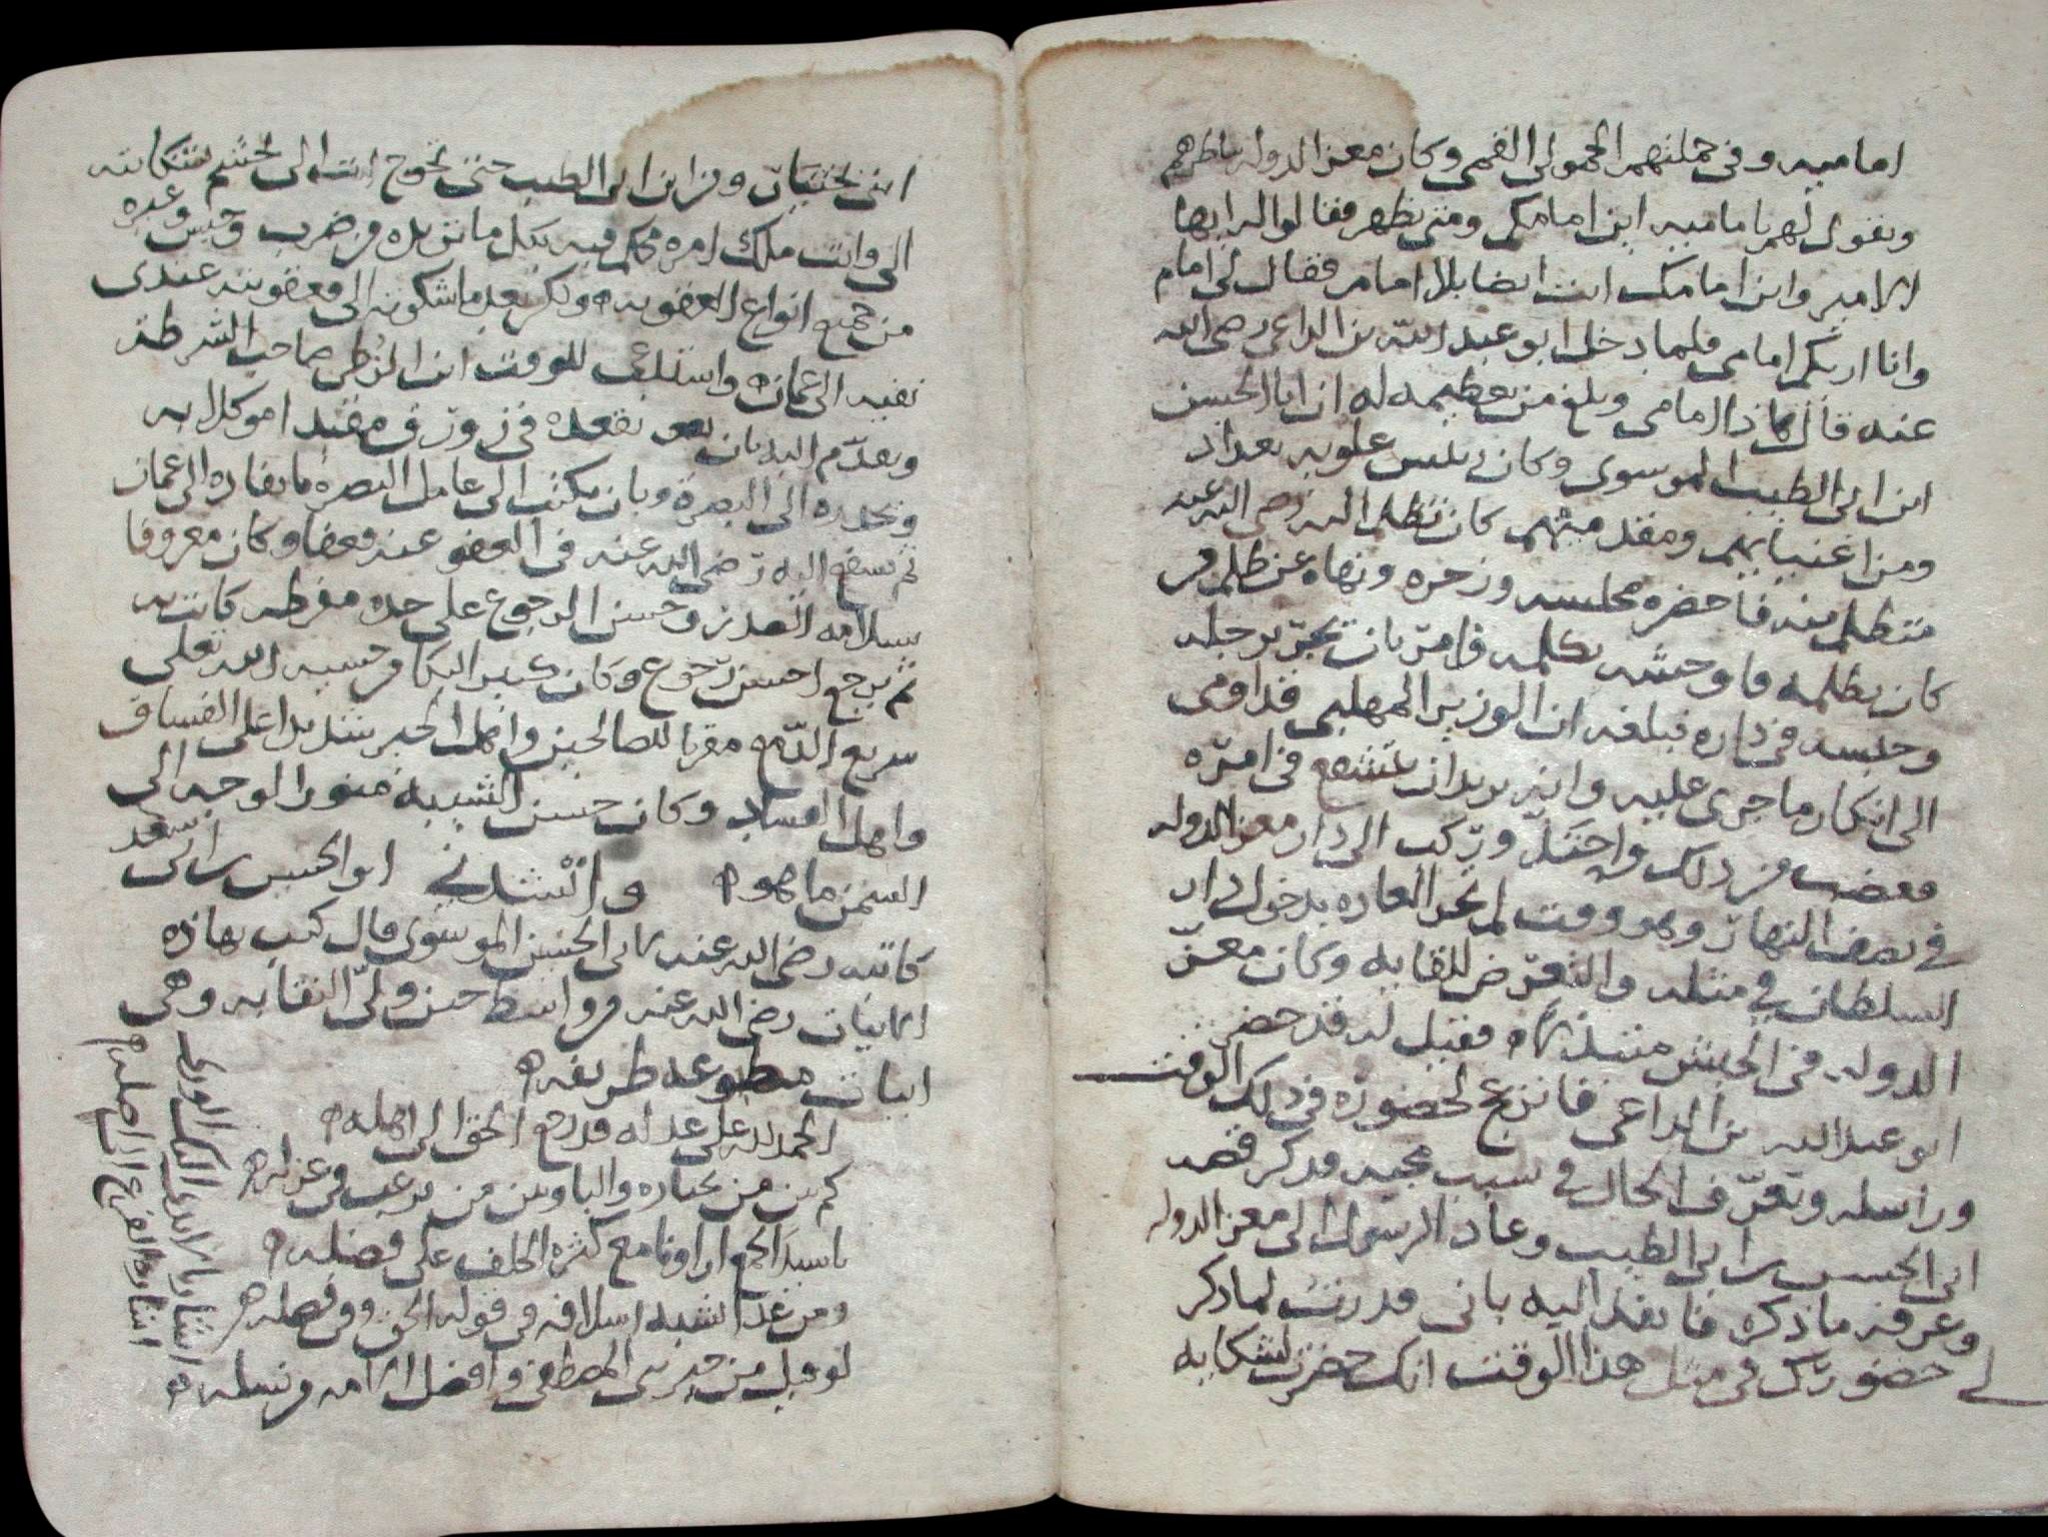 اماميه وفي جملتهم الحمولى القمى وكان معز الدوله يناظرهم
ويقول لهم يا ماميه اين امامكم ومتى يظهر فقالوا له ايها
الامير واين امامك انت ايضا بلا امام فقال لى امام
وانا اريكم امامى فلما دخل ابو عبد الله بن الداعى رضى الله
عنه قال هاذا امامى وبلغ من تعظيمه له ان ابا الحسن
ابن ابى الطيب الموسوى وكان رئيس علويه بغداد
ومن اغنيايهم ومقدميهم كان تظلم اليه رضى الله عنه
متظلم منه فاحضره مجلسه وزجره ونهاه عن ظلم من
كان يظلمه فاوحشه بكلمه فامر بان يجر برجله
وحبسه فى داره فبلغه ان الوزير المهلبى قد اومى
الى انكار ما جرى عليه وانه يريد ان يتشفع فى امره
فغضب من ذلك واحتد وركب الى دار معز الدوله
في نصف النهار وهو وقت لم تجر العاده بدخول دار
السلطان في مثله والتعرض للقايه وكان معز
الدوله فى الخيش متبذلا فقيل له قد حضر
ابو عبد الله بن الداعى فانزعج لحضوره فى ذلك الوقت
وراسله وتعرف الحال في سبب مجيه فذكر قصه
ابى الحسن بن ابى الطيب وعاد الرسول الى معز الدوله
وعرفه ما ذكره فانفذ اليه بانى قدرت لما ذكر
لى حضورك فى مثل هذا الوقت انك حضرت لشكايه
ابنى بختيار ومن ابن ابى الطيب حتى تحوج انت الى تجشم شكايته
الى وانت ملك امره تحكم فيه بكل ما تريده من ضرب وحبس وغيره
من جميع انواع العقوبه ولكن بعد ما شكوته الى فعقوبته عندى
نفيه الى عمان واستدعى للوقت ابن صاحب الشرطه
وتقدم اليه بان يقعده فى زورق مقيدا موكلا به
ويحدره الى البصره وبان يكتب الى عامل البصره بانفاده الى عمان
ثم تشفع اليه رضى الله عنه فى العفو عنه فعفا وكان معروفا
بسلامه الصدر وحسن الرجوع على حده مفرطه كانت به
ثم يرجع احسن رجوع وكان كثير البكا من خشيه الله تعلى
سريع الدمع مقربا للصالحين واهل الخير شديدا على الفساق
واهل الفساد وكان حسن الشيبه منور الوجه الى
السمن ما هو وانشدني ابو الحسن بن ابى سعد
كاتبه رضى الله عنه لابى الحسن الموسوى قال كتب بهاذه
الابيات رضى الله عنه من واسط حين ولى النقابه وهى
ابيات مطبوعه طريفه
الحمد لله على عدله قد رجع الحق الى اهله
كم بين من نختاره واليا وبين من يرغب فى عزله
يا سيد الجمع
مع كثره الخلف على فضله
ومن غدا اشبه اسلافه فى قوله الحق وفى فصله
لو قيل من خير بنى المصطفى وافضل الامه من نسله
اشار بالايدى اليك الورى
اشاره الفرع الى اصله